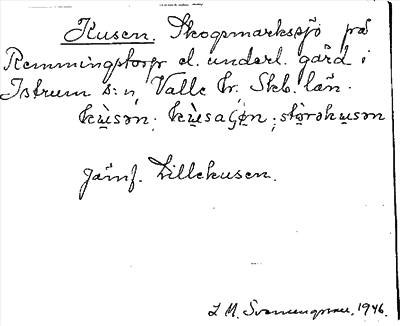 Kusen. Skogsmarkssjö på
Remmingstorp el. underl. gård i
Istrum s:n, Valle hr. Skb. län.
kùsən; kùsaɢən; stòrəkusən
Jämf. Lillekusen.
L. M. Svanungsson, 1946.